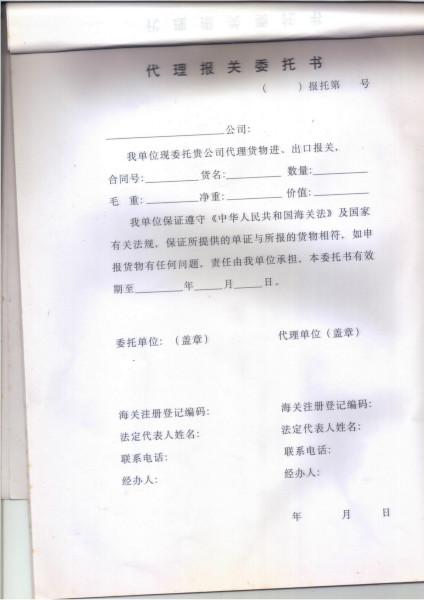 代理报关委托书
（　　）报托第　号
____________公司：
我单位现委托贵公司代理货物进、出口报关，
合同号:________货名:________数量:________
毛　重:________净重:________价值:________
我单位保证遵守《中华人民共和国海关法》及国家
有关法规，保证所提供的单证与所报的货物相符，如申
报货物有任何问题，责任由我单位承担，本委托书有效
期至________年____月____日。
委托单位：（盖章）　代理单位（盖章）
海关注册登记编码:　海关注册登记编码:
法定代表人姓名:　法定代表人姓名:
联系电话:　联系电话:
经办人:　经办人:
年　月　日